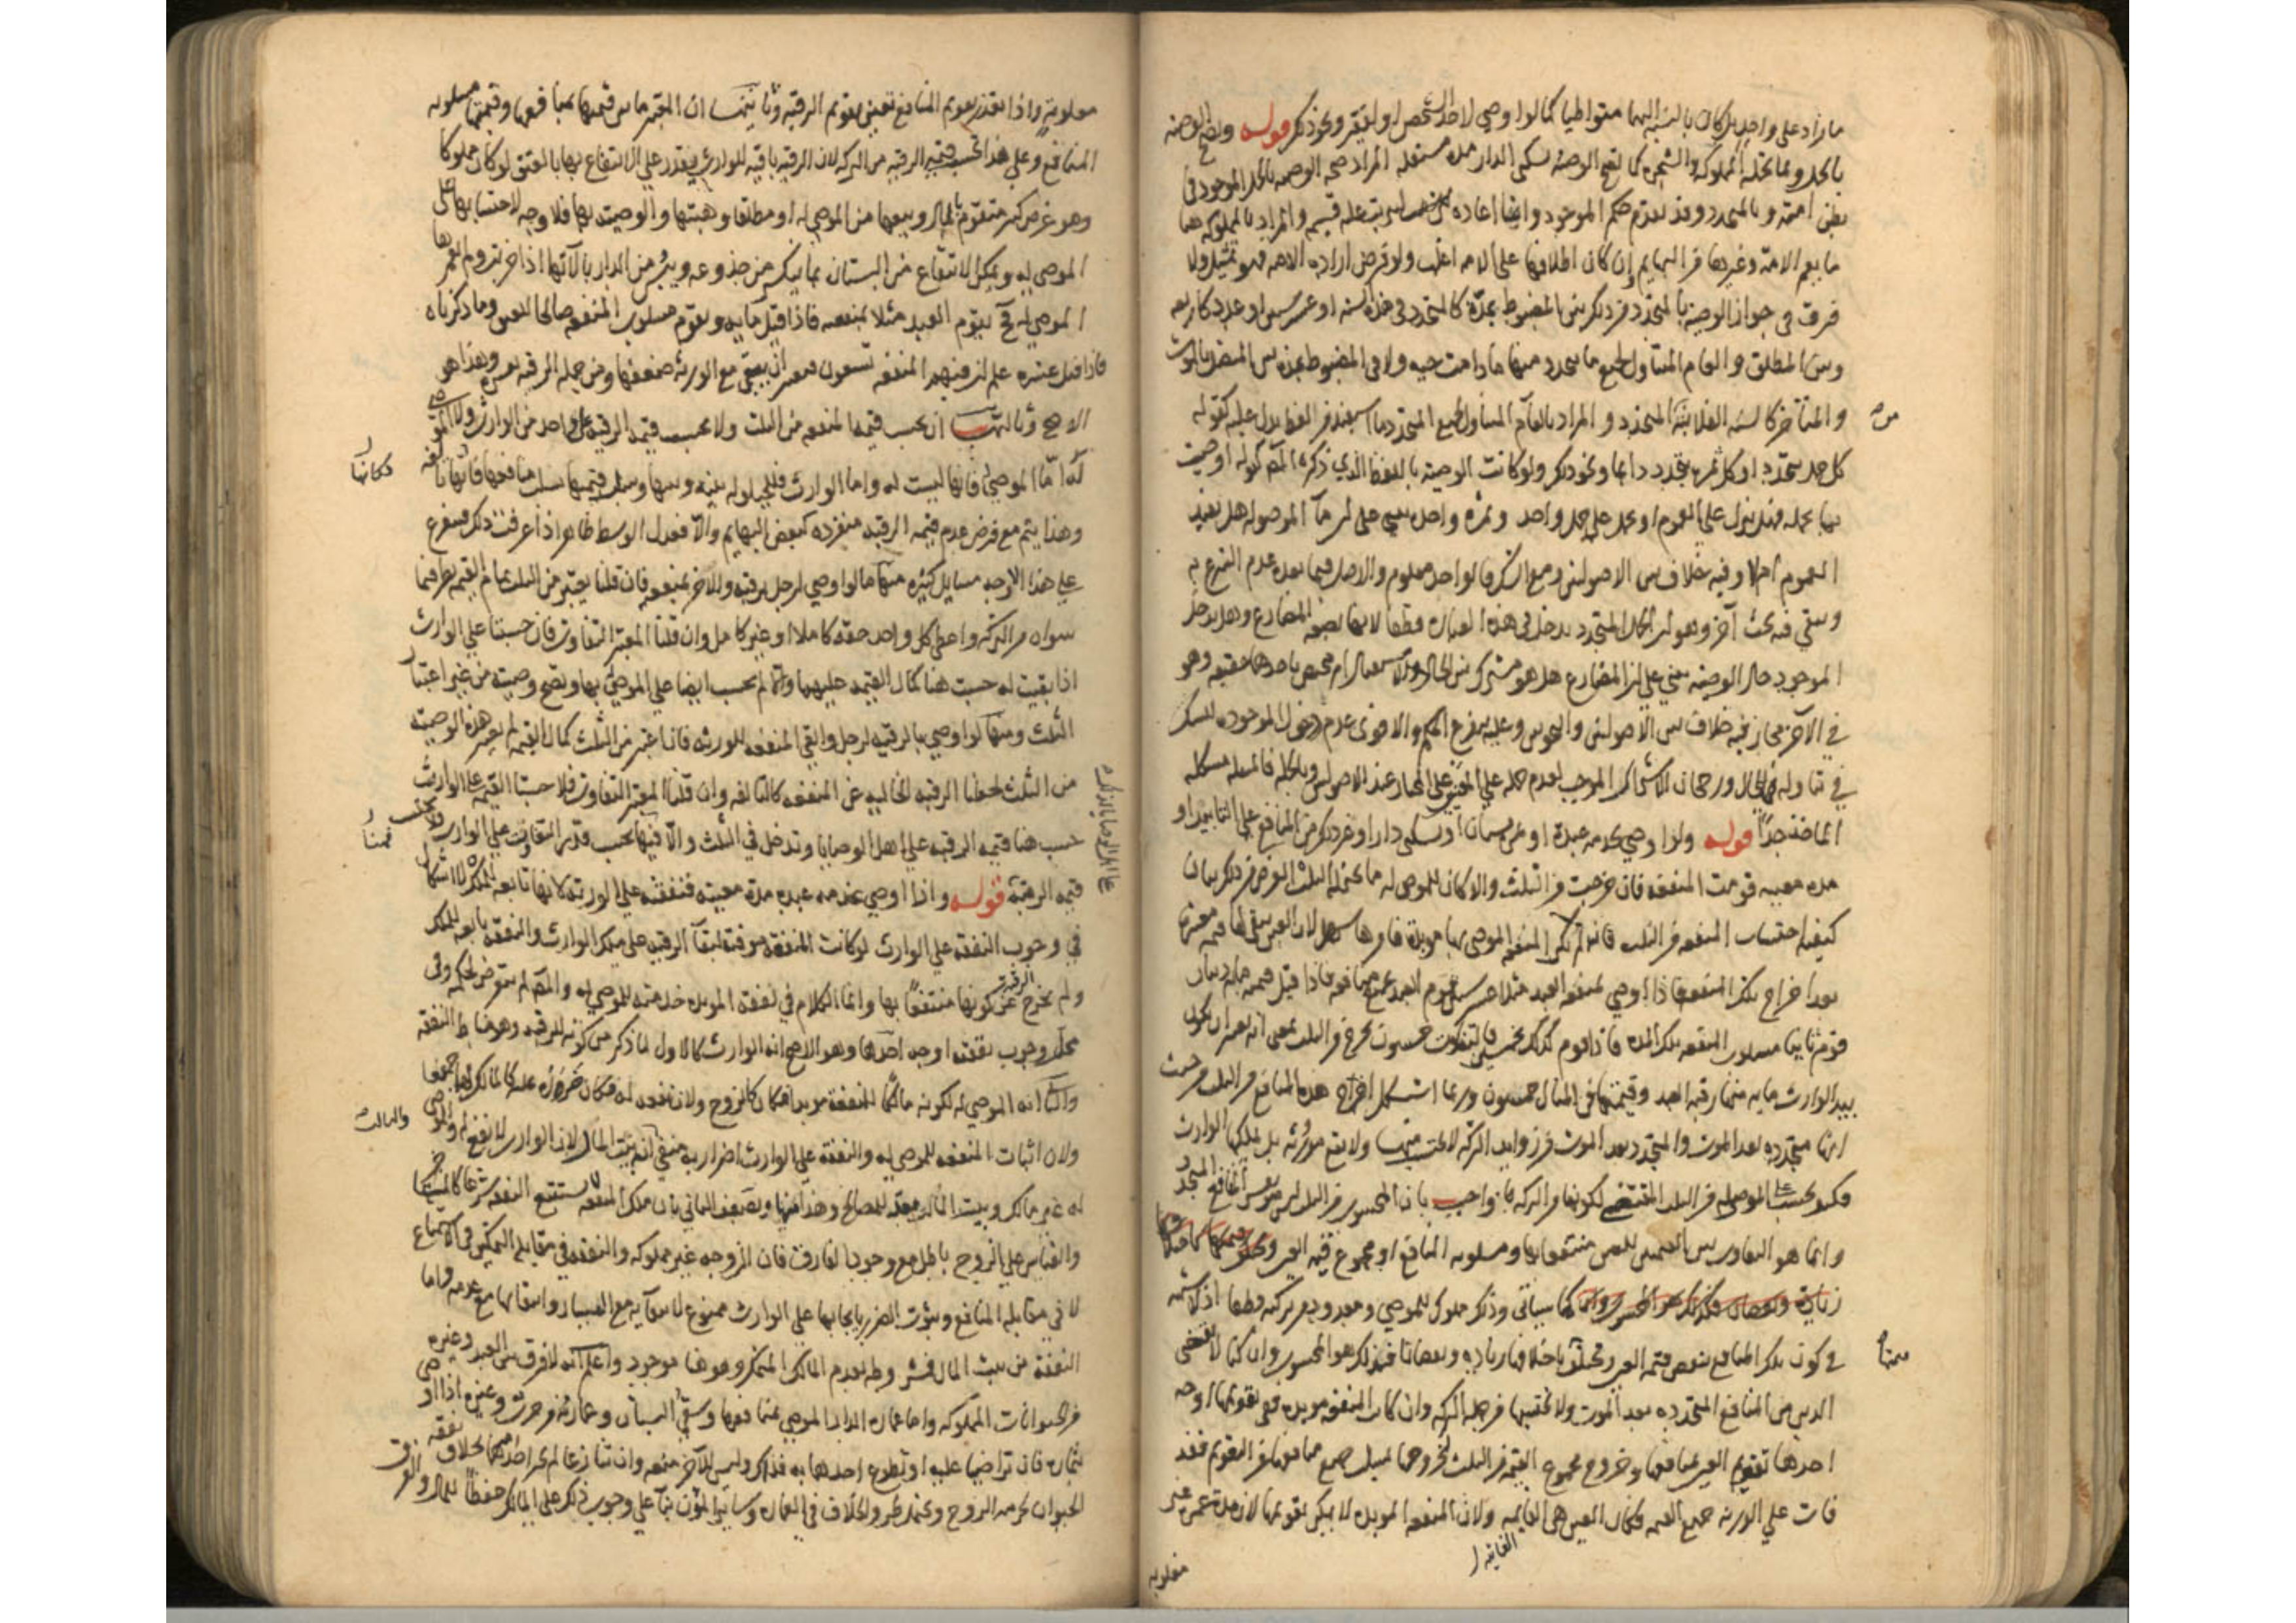 ما زاد على واحد بل كان بالنسبة اليهما متواطيا كما لو اوصى لاحد الشخصين او لفقير ونحو ذلك قوله وتصح الوصية
بالحمل وبما تحمله المملوكة والشجرة كما تصح الوصية بسكنى الدار مدة مستقبلة المراد صحة الوصية بالحمل الموجود في
بطن امته و بالمتجدد وقد تقدم حكم الموجود وانما اعاده ليرتب عليه قسيمه والمراد بالمملوكة هنا
ما يعم الامة وغيرها من البهايم وان كان اطلاقها على الامة اغلب ولو فرض ارادة الامة فهو تمثيل ولا
فرق في جواز الوصية بالمتجدد من ذلك بين المضبوط بمدة كالمتجدد في هذه السنة او عشر سنين او عدد كاربعة
وبين المطلق والعام المتناول لجميع ما يتجدد منها ما دامت حية ولا في المضبوط بمدة بين المتصل بالموت
والمتأخر كالسنة الفلانية المتجدد و المراد بالعام المتناول لجميع المتجدد ما استفيد من لفظ يدل عليه كقوله
كل حمل يتجدد او كل ثمرة تتجدد دايما ونحو ذلك ولو كانت الوصية باللفظ الذي ذكره المص كقوله اوصيت
بما تحمله فهل ينزل على العموم او يحمل على حمل واحد وثمرة واحدة يبنى على ان ما الموصولة هل تفيد
العموم ام لا وفيه خلاف بين الاصوليين ومع الشك فالواحد معلوم والاصل فيما بعده عدم التبرع به
وبقي فيه بحث آخر وهو ان الحمل المتجدد يدخل في هذه العبارة قطعا لانها بصيغة المضارع وهل يدخل
الموجود حال الوصية يبنى على ان المضارع هل هو مشترك بين الحال والاستقبال ام مختص باحدهما حقيقة وهو
في الآخر مجاز فيه خلاف بين الاصوليين والنحويين وعليه يتفرع الحكم والاقوى عدم دخول الموجود للشك
في تناوله للحال ورجحان الاشتراك الموجب لعدم حمله على المعنيين على المختار عند الاصوليين وبالجملة فالمسئلة مشكلة
المأخذ جدا قوله ولو اوصى بخدمة عبده او ثمرة بستان او سكنى دار او غير ذلك من المنافع على التابيد او
مدة معينة قومت المنفعة فان خرجت من الثلث والا كان للموصى له ما يحتمله الثلث الغرض من ذلك بيان
كيفية احتساب المنفعة من الثلث فانه ان لم تكن المنفعة الموصى بها مؤبدة فامرها سهل لان العين تبقى لها قيمة معتبرة
بعد اخراج تلك المنفعة فاذا اوصى بمنفعة العبد مثلا خمس سنين قوم العبد بجميع منافعه فاذا قيل قيمته مائة دينار
قوم ثانيا مسلوب المنفعة تلك المدة فاذا قوم كذلك بخمسين فالتفاوت خمسون تخرج من الثلث بمعنى انه يعتبر ان يكون
بيد الوارث مائة منها رقبة العبد وقيمتها في المثال خمسون وربما استشكل اخراج هذه المنافع من الثلث من حيث
انها متجددة بعد الموت والمتجدد بعد الموت من زوايد التركة لا يحتسب منها ولا يقع موروثه بل يملكها الوارث
فكيف يحتسب على الموصى له من الثلث المقتضي لكونها من التركة واجيب بان المحسوب من الثلث ليس هو نفس المنافع المتجددة
وانما هو التفاوت بين قيمة العين منتفعا بها ومسلوبة المنافع او مجموع قيمة العين
كما سيأتي وذلك مملوك للموصي ومعدود من تركته قطعا اذ لا شبهة
في كون تلك المنافع تنقص قيمة العين وتختلف باختلافها زيادة ونقصانا فذلك هو المحسوب وان كنا لا نقضي
الدين من المنافع المتجددة بعد الموت ولا نحتسبها من جملة التركة وان كانت المنفعة مؤبدة ففي تقويمها اوجه
احدها تقويم العين بمنافعها وخروج مجموع القيمة من الثلث لخروجها بسلب جميع منافعها عن التقويم فقد
فات على الورثة جميع القيمة فكان العين هي الفايتة ولان المنفعة المؤبدة لا يمكن تقويمها لان مدة عمره غير
معلومة
معلومة واذا تعذر تقويم المنافع تعين تقويم الرقبة وثانيها ان المعتبر ما بين قيمتها بمنافعها وقيمتها مسلوبة
المنافع وعلى هذا تحسب قيمة الرقبة من التركة لان الرقبة باقية للوارث ويقدر على الانتفاع بها بالعتق لو كان مملوكا
وهو غرض كبير متقوم بالمال وبيعها من الموصى له او مطلقا وهبتها والوصية بها فلا وجه لاحتسابها على
الموصى له ويمكن الانتفاع من البستان بما ينكسر من جذوعه ويبس ومن الدار بآلاتها اذا خربت ولم يعمرها
الموصى له فح يقوم العبد مثلا بمنفعته فاذا قيل مائة ويقوم مسلوب المنفعة صالحا للعتق وما ذكرناه
فاذا قيل عشرة علم ان قيمة المنفعة تسعون فيعتبر ان يبقى مع الورثة ضعفها ومن جملة الرقبة بعشرة وهذا هو
الاصح وثالثها ان تحسب قيمة المنفعة من الثلث ولا تحسب قيمة الرقبة على واحد من الوارث ولا الموصى
له اما الموصى له فانها ليست له واما الوارث فللحيلولة بينه وبينها وسلب قيمتها بسلب منافعها فكانها تالفة
وهذا يتم مع فرض عدم قيمة الرقبة منفردة كبعض البهايم والا فعدل الوسط ظاهر اذا عرفت ذلك فيتفرع
على هذه الاوجه مسايل كثيرة منها ما لو اوصى لرجل برقبته ولآخر بمنفعته فان قلنا يعتبر من الثلث تمام القيمة نظر فيما
سواه من التركة واعطي كل واحد حقه كاملا او غير كامل وان قلنا المعتبر التفاوت فان حسبنا على الوارث
اذا بقيت له حسبت هنا كمال القيمة عليهما وان لم تحسب ايضا على الموصى بها وتصح وصيته من غير اعتبار
الثلث ومنها لو اوصى بالرقبة لرجل وابقى المنفعة للورثة فان اعتبر من الثلث كمال القيمة لم تعتبر هذه الوصية
من الثلث لجعلنا الرقبة الخالية عن المنفعة كالتالفة وان قلنا المعتبر التفاوت فلا حسبنا القيمة على الوارث
حسب هنا قيمة الرقبة على اهل الوصايا وتدخل في الثلث والا فيها يحسب قدر التفاوت على الوارث ولا تحسب
قيمة الرقبة قوله واذا اوصى بخدمة عبده مدة معينة فنفقته على الورثة لانها تابعة للملك لا اشكال
في وجوب النفقة على الوارث لو كانت المنفعة موقتة لبقاء الرقبة على ملك الوارث والنفقة تابعة للملك
ولم يخرج عن كونها منتفعا بها وانما الكلام في نفقة المؤبدة خدمته للموصى له والمص لم يتعرض لحكمه وفي
محل وجوب نفقته اوجه احدها وهو الاصح انه الوارث كالاول لما ذكر من كونه للرقبة وهو مناط النفقة
والثاني انه الموصى له لكونه مالكا للمنفعة مؤبدا فكان كالزوج ولان نفعه له فكان ضرره عليه كالمالك لهما جميعا
ولان اثبات المنفعة للموصى له والنفقة على الوارث اضرار به منفي والثالث انه بيت المال لان الوارث لا نفع له والموصى
له غير مالك وبيت المال معد للمصالح وهذا منها ويضعف الثاني بان ملك المنفعة لا يستتبع النفقة شرعا كالمستاجر
والقياس على الزوج باطل مع وجود الفارق فان الزوجة غير مملوكة والنفقة في مقابلة التمكين في الاستمتاع
لا في مقابلة المنافع وثبوت الضرر بايجابها على الوارث ممنوع
النفقة من بيت المال مشروط بعدم المالك المتمكن وهو هنا موجود واعلم انه لا فرق بين العبد وغيره
من الحيوانات المملوكة واما عمارة الدار الموصى بمنافعها وسقي البستان وعمارته من حرث وغيره اذا اوصى
بثماره فان تراضيا عليه او تطوع احدهما به فذاك وليس للآخر منعه وان تنازعا لم يجبر احدهما بخلاف نفقة
الحيوان لحرمة الروح ويحتمل طرد الخلاف في العمارة وساير المؤن بناء على وجوب ذلك على المالك حفظا للمال والفرق